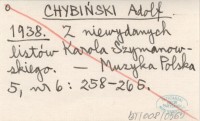 CHYBIŃSKI Adolf
1938. Z niewydanych
listów Karola Szymanow-
skiego. — Muzyka Polska
5, nr 6 : 258-265.